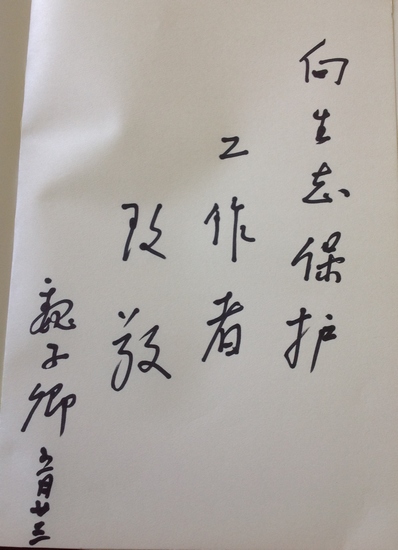 向生态保护
工作者
致敬
魏子卿 月